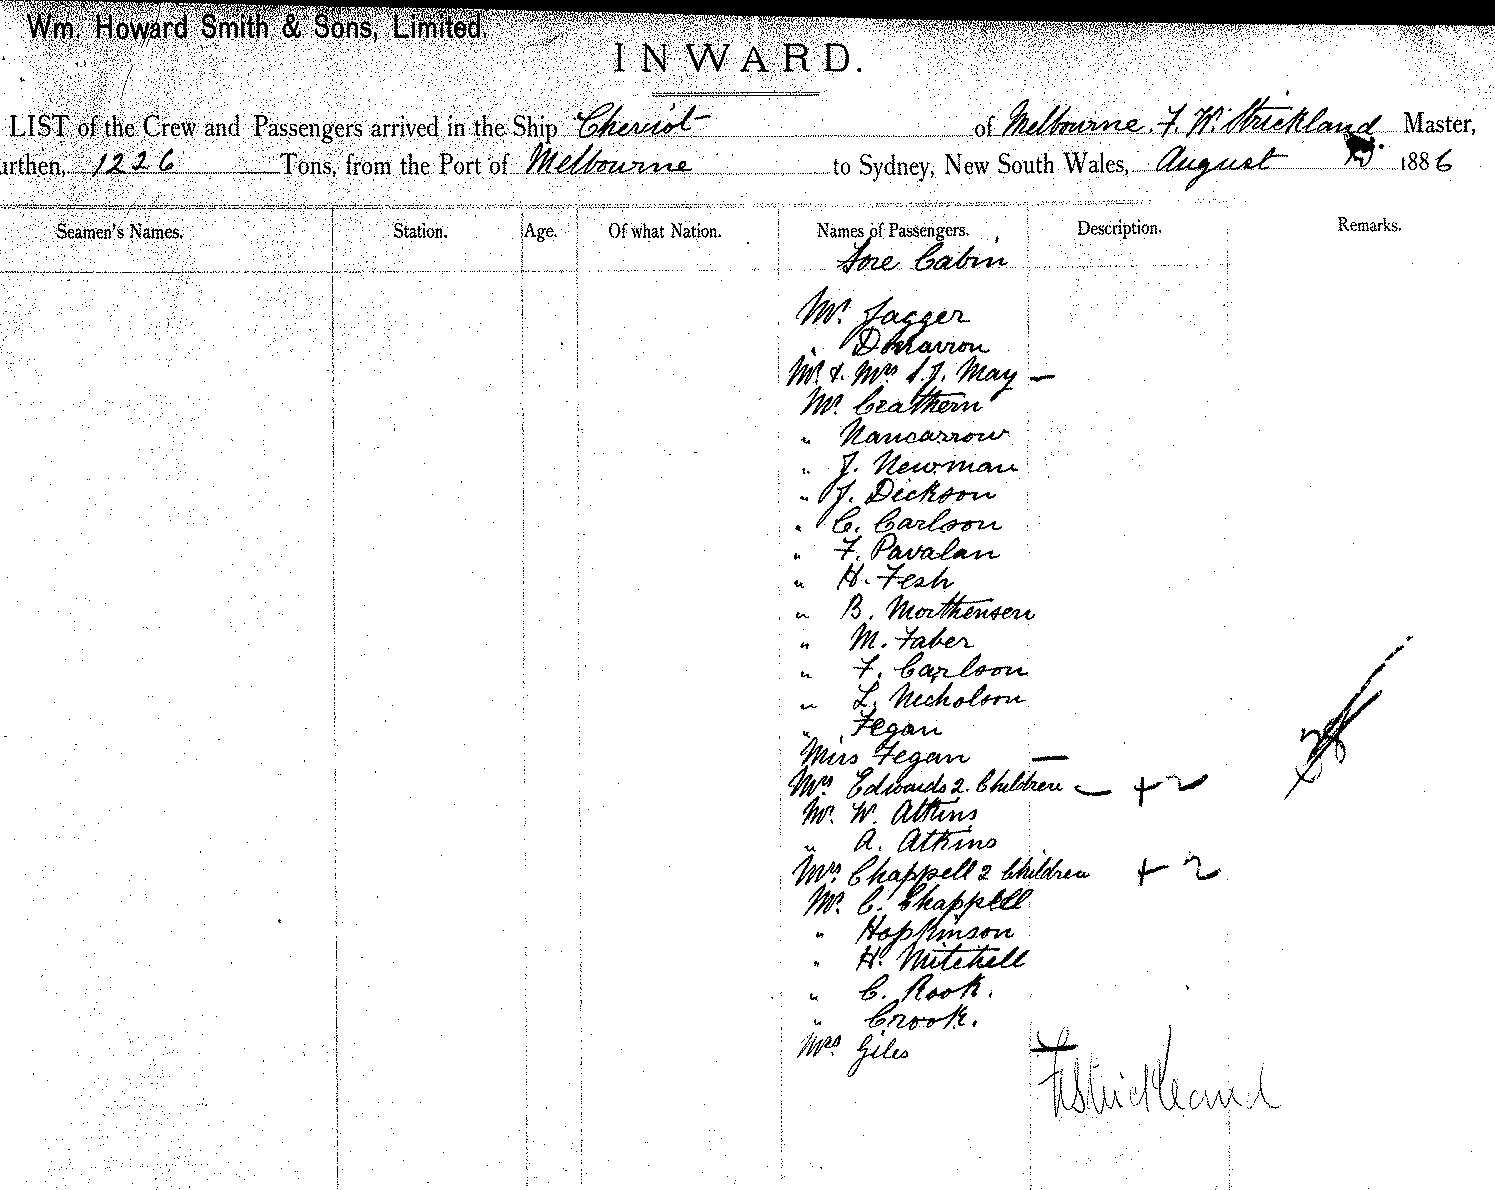 Wm. Howard Smith & Sons, Limited.
INWARD.
LIST of the Crew and Passengers arrived in the Ship Cheviot of Melbourne, F. W. Strickland Master,
urthen, 1226 Tons, from the Port of Melbourne to Sydney, New South Wales, August 1886
Seamen's Names. Station. Age. Of what Nation. Names of Passengers. Description. Remarks.
Fore Cabin
Mr. Jagger
"
Mr. & Mrs. S. J. May —
Mr. Crathern
" Nancarrow
" J. Newman
" J. Dickson
" C. Carlson
" F. Pavalan
" H. Fesh
" B. Morthensen
" M. Faber
" F. Carlson
" L. Nicholson
" Fegan
Miss Fegan —
Mrs. Edwards 2. Children — + 2
Mr. W. Atkins
" A. Atkins
Mrs. Chappell 2 Children + 2
Mr. C. Chappell
" Hopkinson
" H. Mitchell
" C. Rook.
" Crook.
Mrs. Giles —
FWStrickland